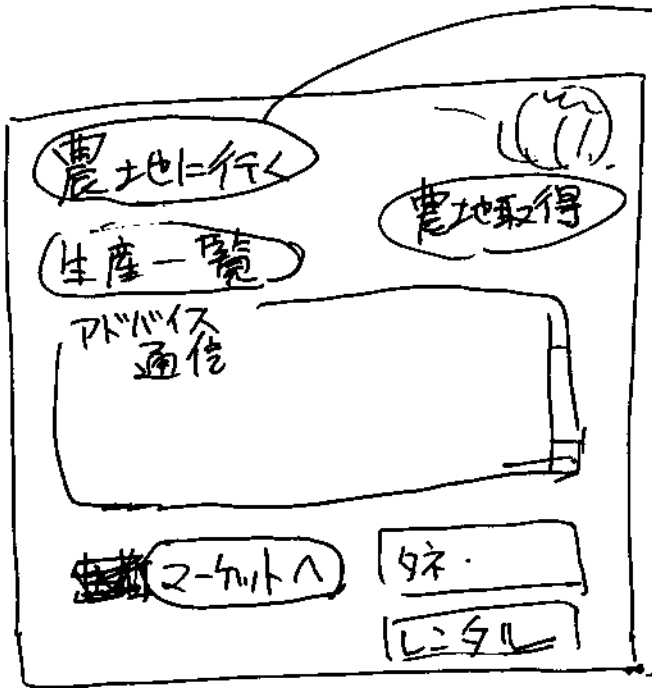 農地に行く
農地取得
生産一覧
アドバイス
通信
マーケットへ
タネ・
レンタル